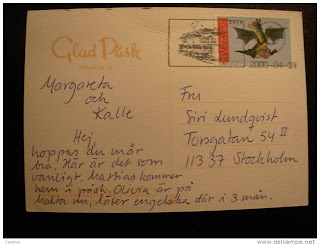 Glad Påsk
Margareta
och
Kalle
Hej
hoppas du mår
bra. Här är det som
vanligt. Mattias kommer
hem i påsk. Olivia är på
Malta nu, läser engelska där i 3 mån.
Fru
Siri Lundquist
Torsgatan 54 II
113 37 Stockholm